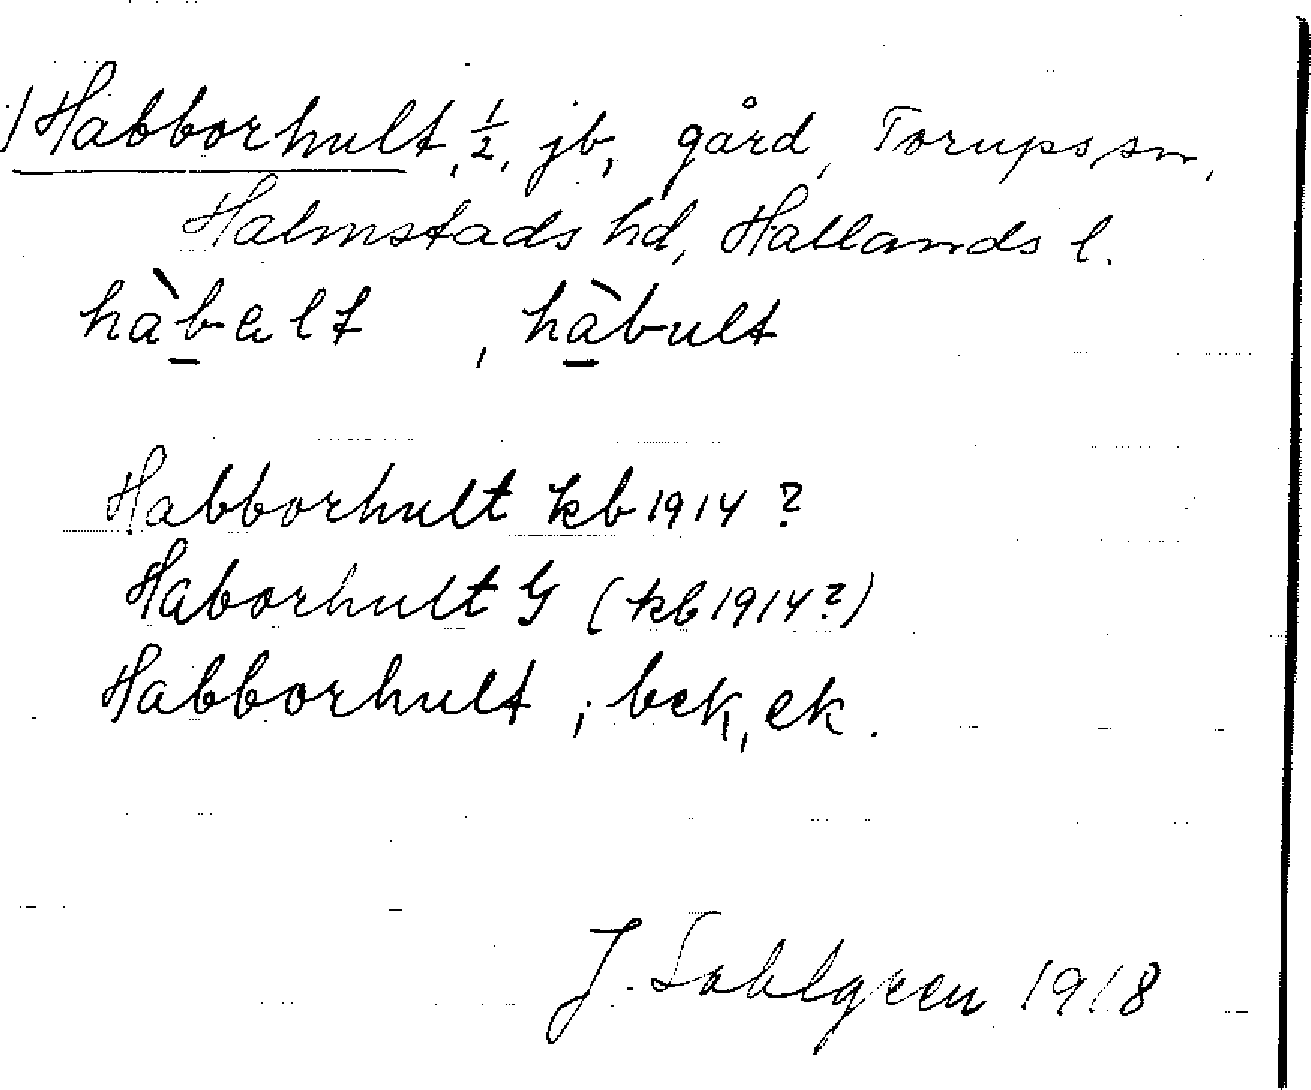 1) Habborhult, ½, jb, gård, Torups sn,
Halmstads hd, Hallands l.
hàb̲alt, hà̲bult
Habborhult kb 1914 ?
Haborhult G (kb 1914 ?)
Habborhult, bek, ek.
J. Sahlgren 1918